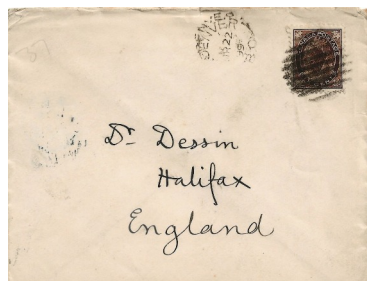 Dr Dessin
Halifax
England